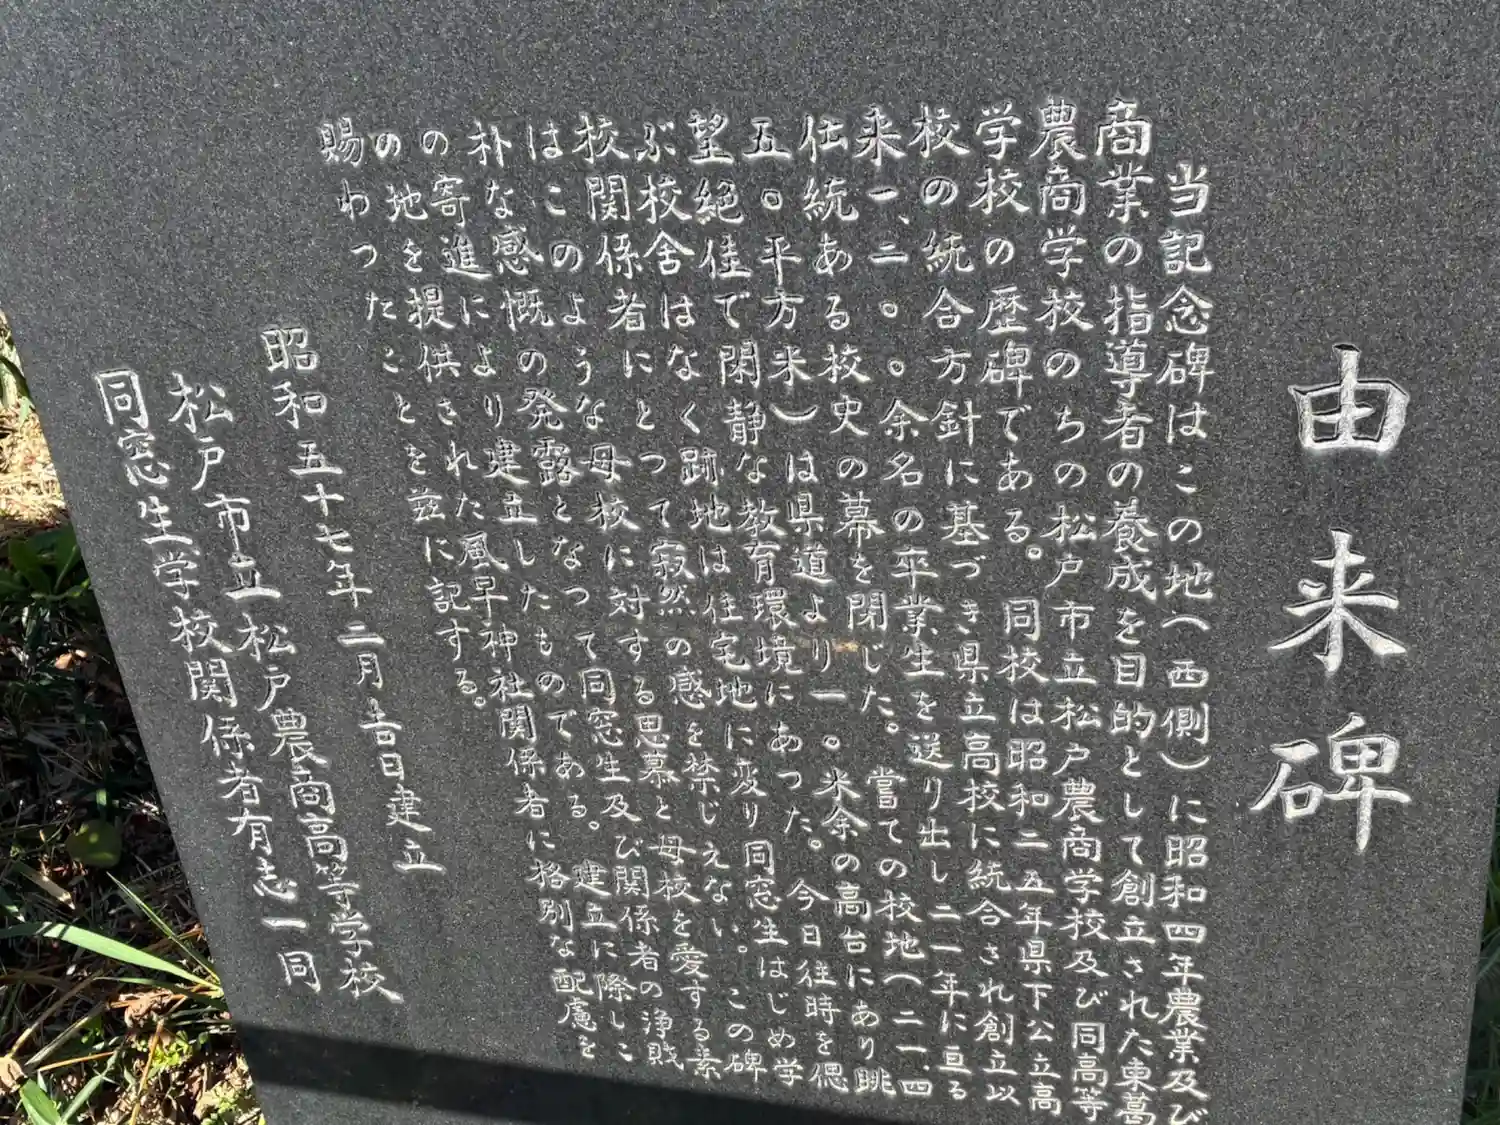 由来碑
当記念碑はこの地(西側)に昭和四年農業及び
商業の指導者の養成を目的として創立された東葛
農商学校のちの松戸市立松戸農商学校及び同高等
学校の歴碑である。同校は昭和二五年県下公立高
校の統合方針に基づき県立高校に統合され創立以
来一、二〇〇余名の卒業生を送り出し二一年に亘る
伝統ある校史の幕を閉じた。嘗ての校地(二一、四
五〇平方米)は県道より一〇米余の高台にあり眺
望絶佳で閑静な教育環境にあった。今日往時を偲
ぶ校舎はなく跡地は住宅地に変り同窓生はじめ学
校関係者にとって寂然の感を禁じえない。この碑
はこのような母校に対する思慕と母校を愛する素
朴な感慨の発露となって同窓生及び関係者の浄財
の寄進により建立したものである。建立に際しこ
の地を提供された風早神社関係者に格別な配慮を
賜わったことを茲に記する。
昭和五十七年二月吉日建立
松戸市立松戸農商高等学校
同窓生学校関係者有志一同